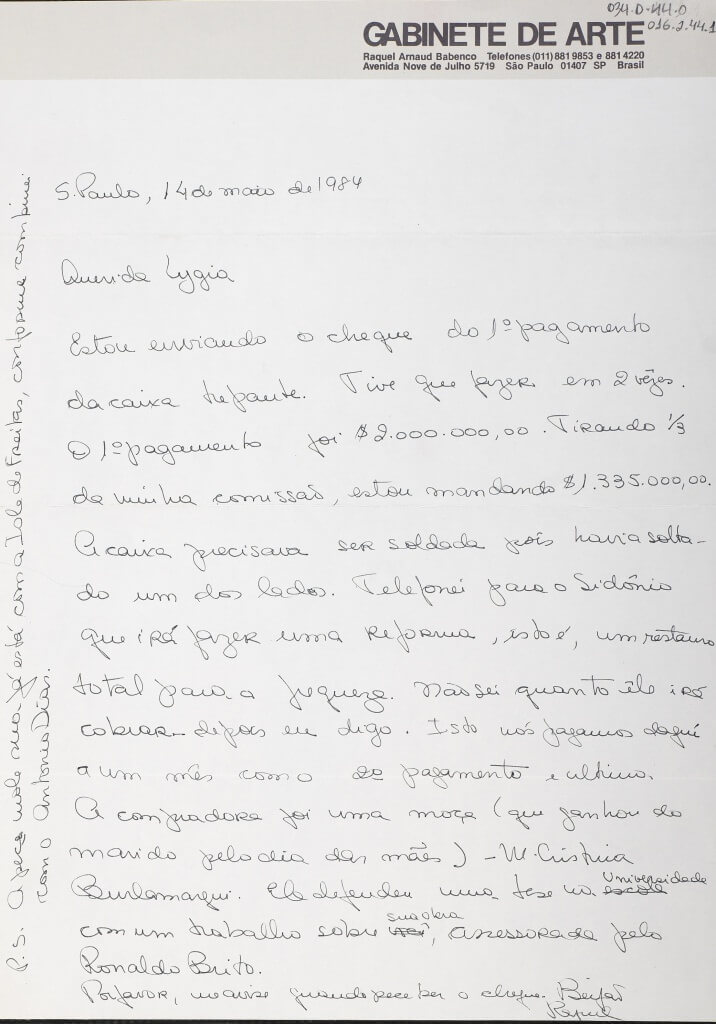 034.0-44.0
016.2.44.1
GABINETE DE ARTE
Raquel Arnaud Babenco Telefones (011) 881 9853 e 881 4220
Avenida Nove de Julho 5719 São Paulo 01407 SP Brasil
S. Paulo, 14 de maio de 1984
Querida Lygia
Estou enviando o cheque do 1º pagamento
da caixa trepante. Tive que fazer em 2 vêzes.
O 1º pagamento foi $ 2.000.000,00. Tirando 1/3
da minha comissão, estou mandando $ 1.335.000,00.
A caixa precisava ser soldada pois havia solta-
do um dos lados. Telefonei para o Sidônio
que irá fazer uma reforma, isto é, um restauro
total para a freguesa. Não sei quanto êle irá
cobrar - depois eu digo. Isto nós pagamos daqui
a um mês com o 2º pagamento e ultimo.
A compradora foi uma moça (que ganhou do
marido pelo dia das mães) - M. Cristina
Burlamaqui. Ela defendeu uma tese na escola Universidade
com um trabalho sobre sua obra, assessorada pelo
Ronaldo Brito.
Por favor, me avise quando receber o cheque. Beijão
Raquel
P.S. A peça mole sua já está com a Iole de Freitas, conforme combinei
com o Antonio Dias.